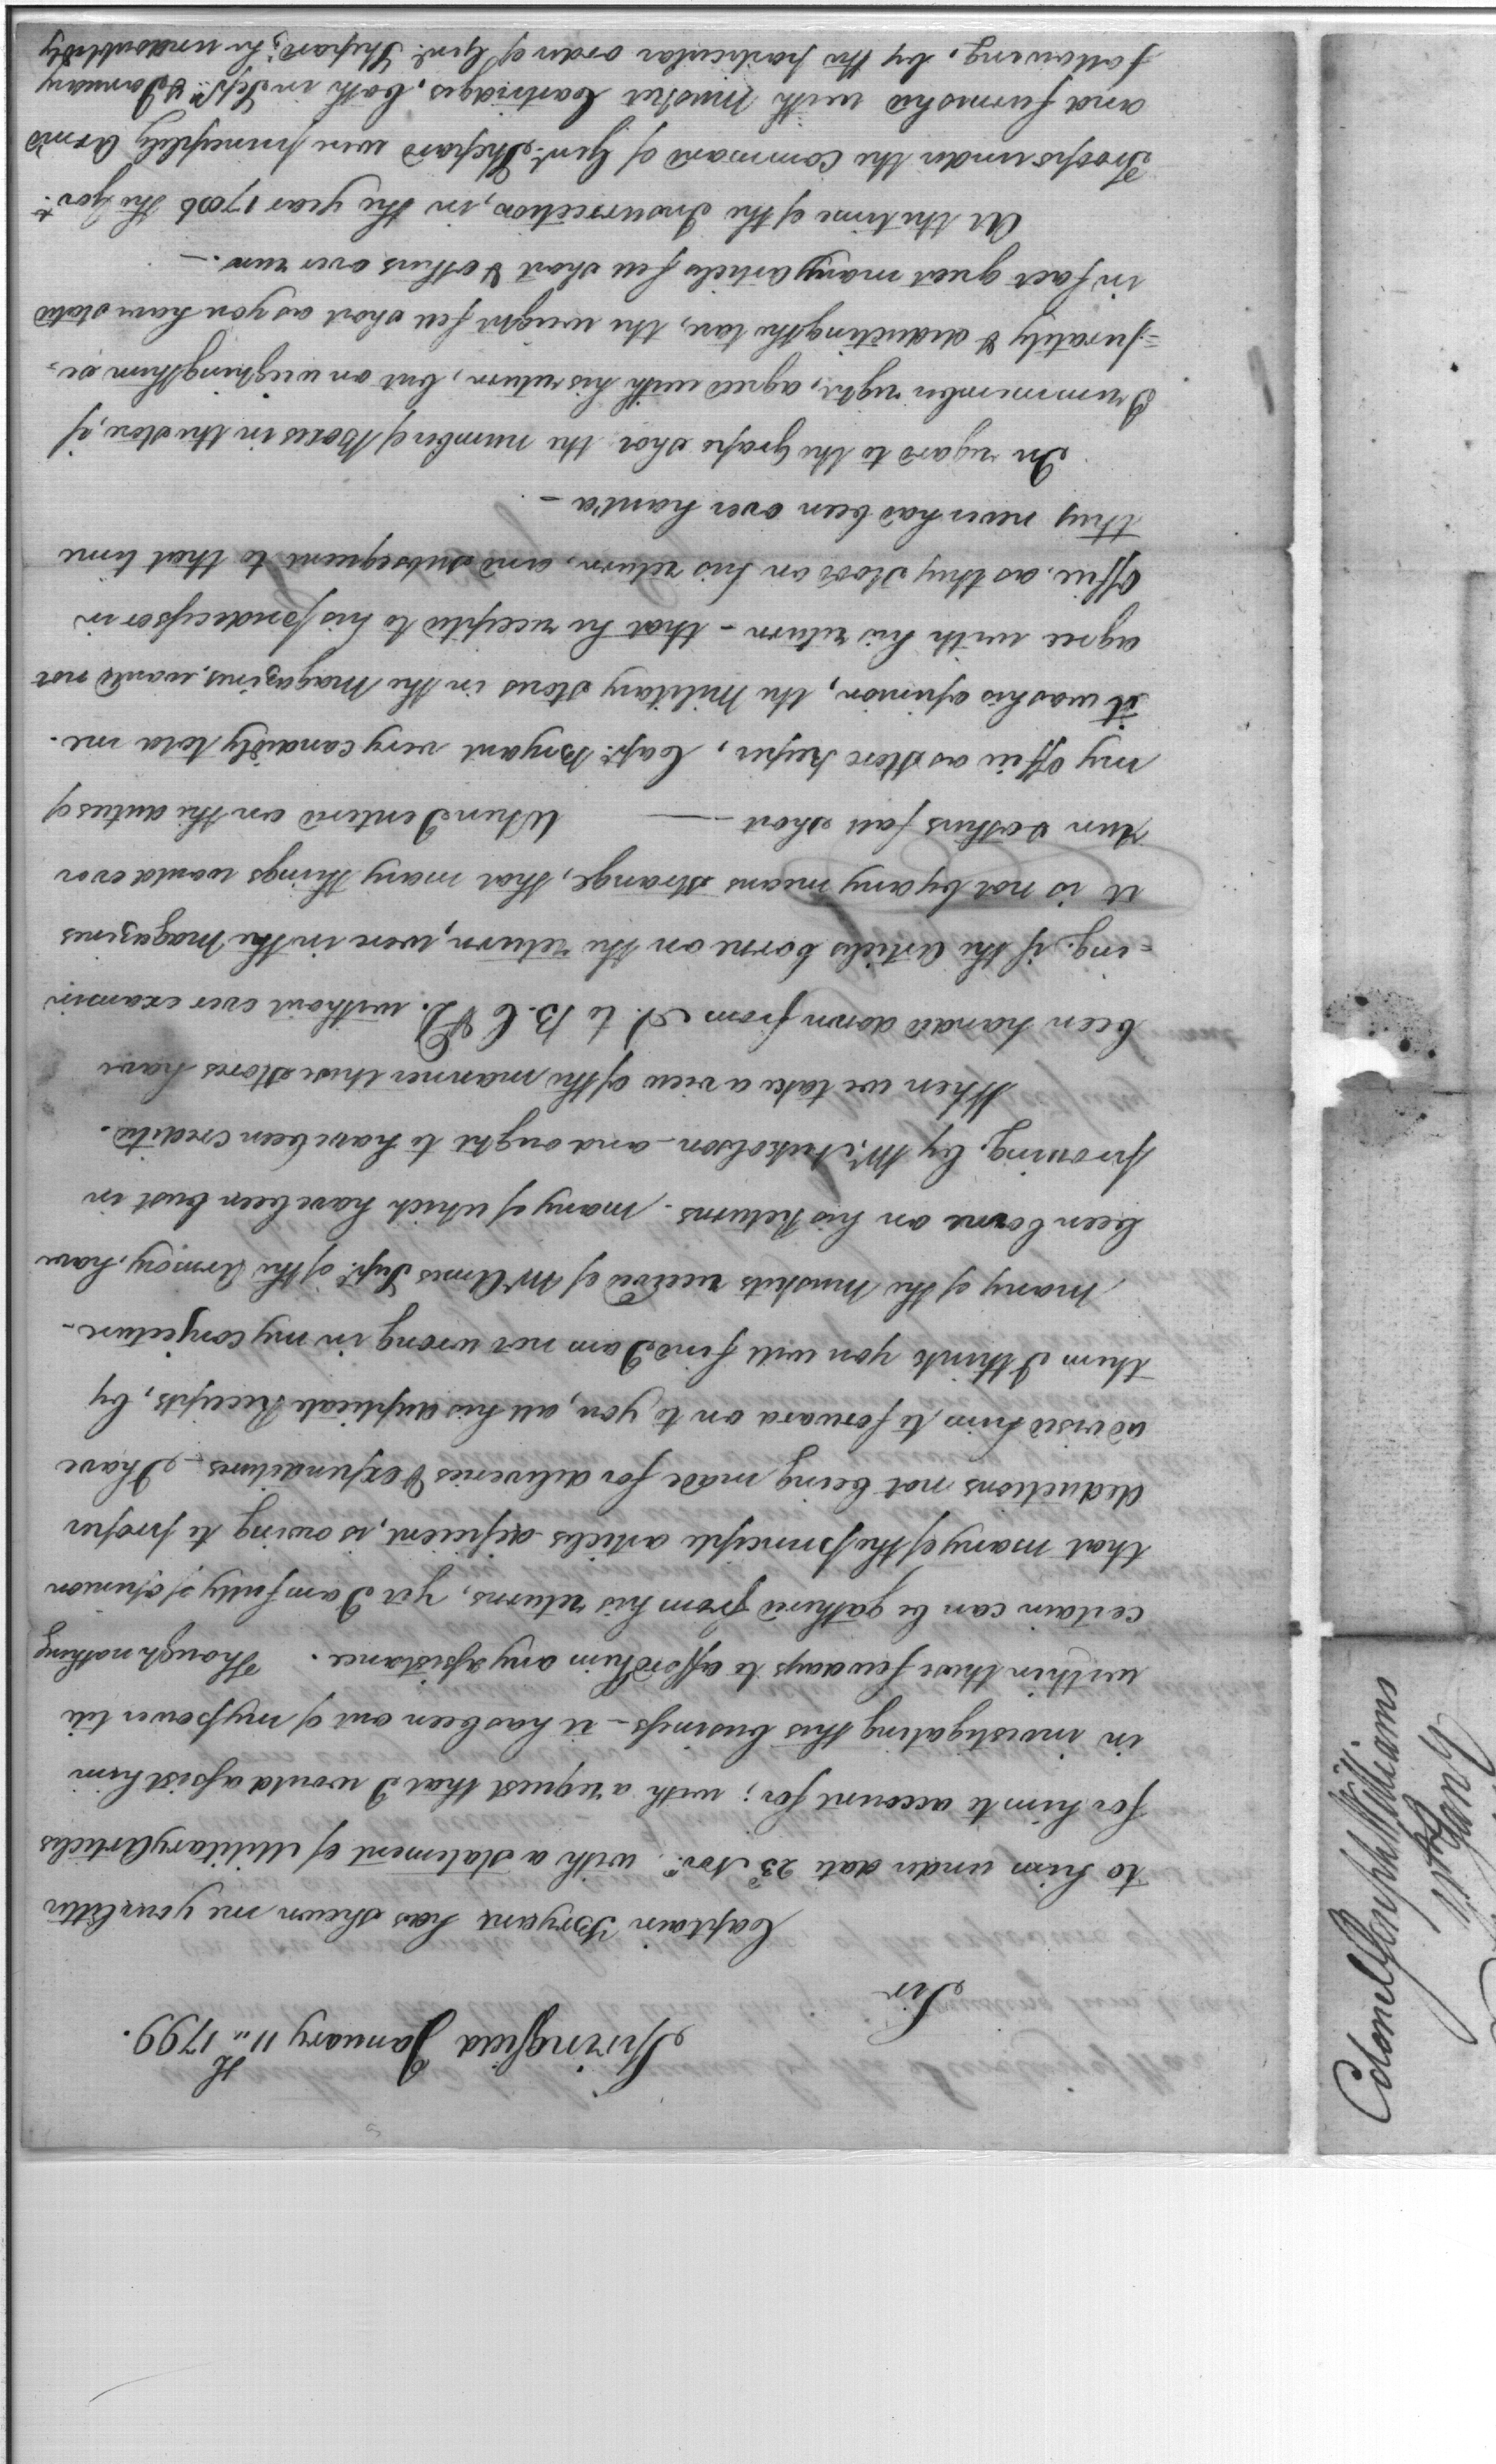 Springfield January 11th 1799.
Sir
Captain Bryant has shewn me your letter
to him under date 23d Novr. with a statement of Military Articles
for him to account for; with a request that I would assist him
in investigating this business - it has been out of my power till
within these few days to afford him any assistance. Though nothing
certain can be gathered from his returns, yet I am fully of opinion
that many of the principle articles deficient, is owing to proper
deductions not being made for deliveries & expenditures - I have
advised him, to forward on to you, all his duplicate Receipts, by
them I think you will find I am not wrong in my conjecture -
Many of the Muskets received of Mr Ames Supt. of the Armory, have
been borne on his Returns - many of which have been bust in
proving, by Mr. Nickolson - and ought to have been credited.
When we take a view of the manner these Stores have
been handed down from A. to B. C & D. without ever examin
=ing, if the Articles borne on the return, were in the Magazines
it is not by any means strange, that many things would over
run & others fall short — When I entered on the duties of
my office as Store keeper, Capt. Bryant very candidly told me.
it was his opinion, the Military Stores in the Magazines, would not
agree with his return - that he receipted to his predecessor in
office, as they stood on his return, and subsequent to that time
they never had been over haul'd -
In regard to the Grape Shot the number of Boxes in the store, if
I remember right, agreed with his return, but on weighing them se=
=perately & deducting the tare, the weight fell short as you have stated
in fact great many articles fell short & others over run. -
At the time of the Insurrection, in the year 1786 the Govt.
Troops under the Command of Genl. Shepard were principlly Arm'd
and furnished with Musket Cartridges, both in Sepr. & January
following, by the particular order of Genl. Shepard; he undoubtedly
Colonel Joseph Williams